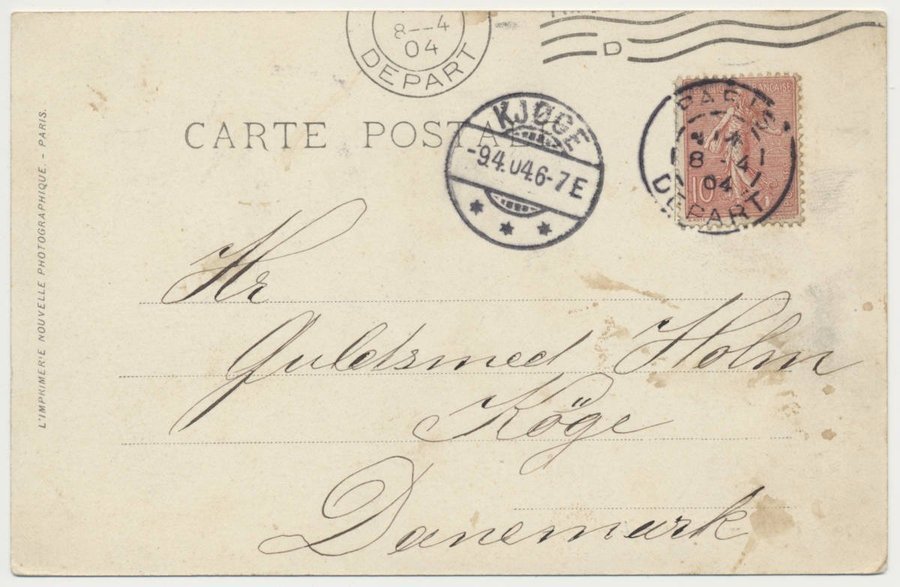 8--4
04
DEPART
D
CARTE POSTALE
KJØGE
-9.4.04.6-7E
PARIS
8 -4
04
DEPART
10
Hr
Guldsmed Holm
Köge
Danemark
L'IMPRIMERIE NOUVELLE PHOTOGRAPHIQUE. - PARIS.